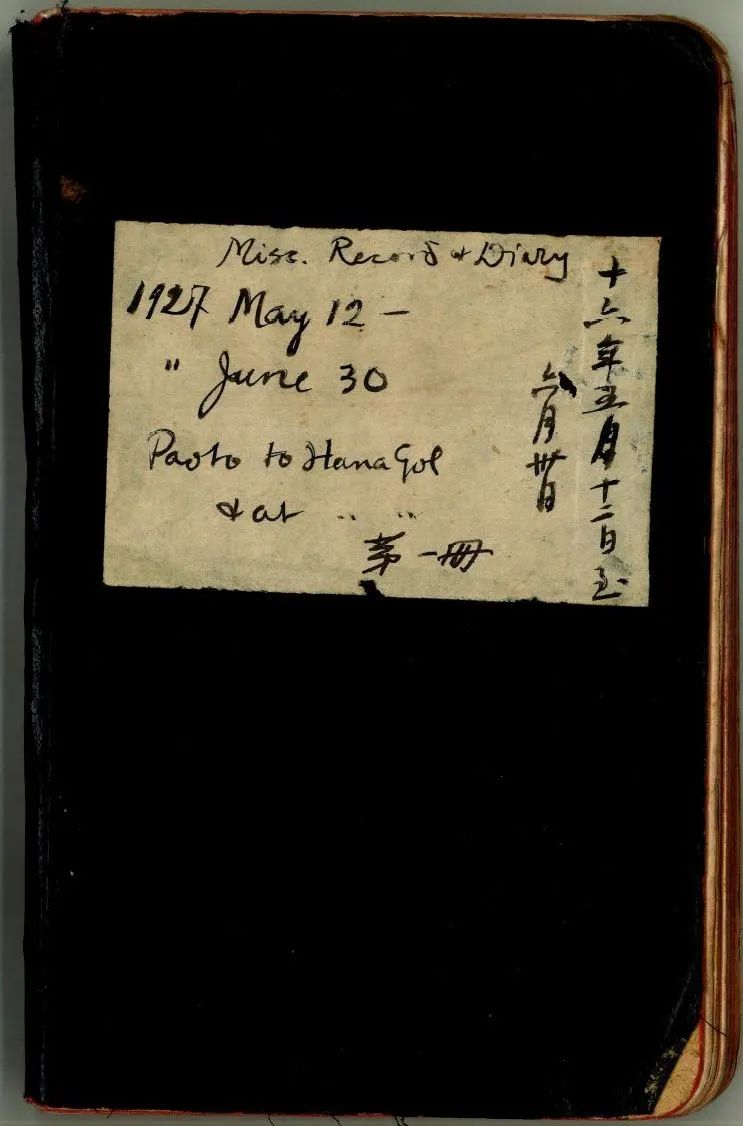 Misc. Record & Diary
1927 May 12 –
" June 30
Paoto to Hana Gol
& at " "
第一冊
十六年五月十二日至
六月卅日